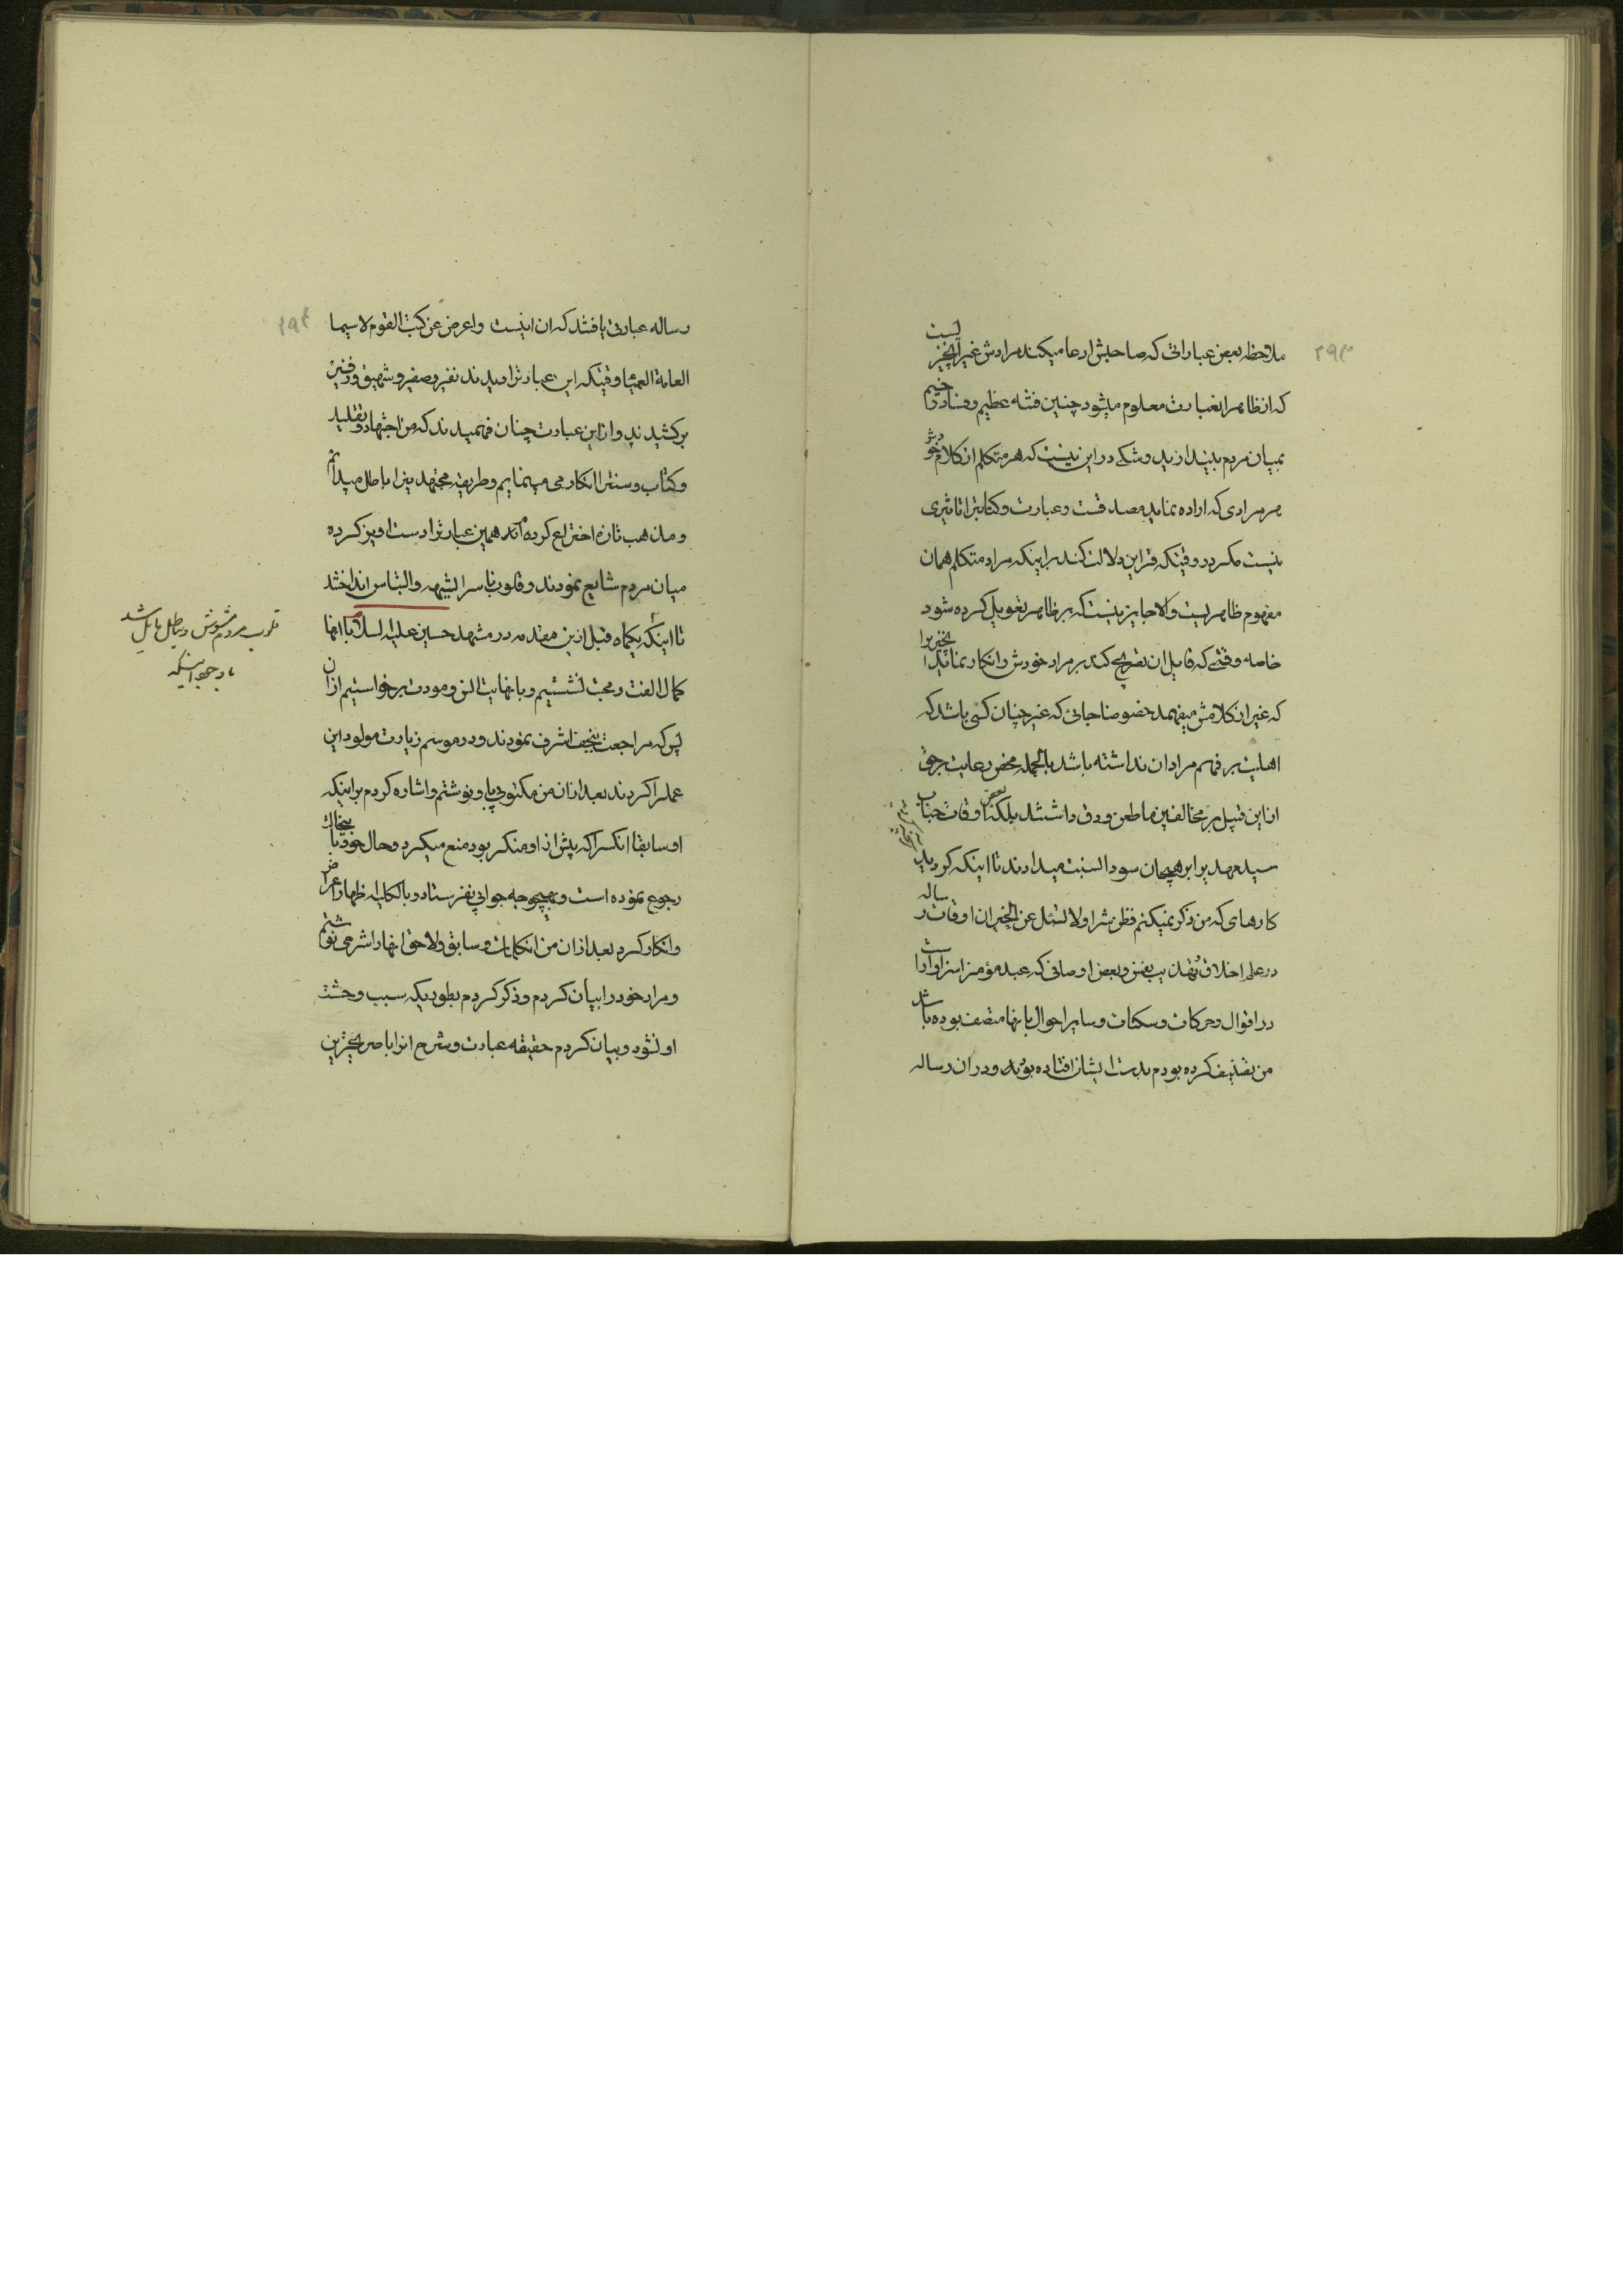 ۲۹۳
ملاحظه بعض عباراتی که صاحبش ادعا میکند مرادش غیر آنچیزیست
که از ظاهر اینعبارت معلوم میشود چنین فتنه عظیم و فساد وخیم
بمیان مردم بیندازید و شکی در این نیست که هر متکلم از کلام خودش
هر مرادی که اراده نماید مصدقست و عبارت و کتابترا تاثیری
نیست مگر در وقتیکه قراین دلالت کند بر اینکه مراد متکلم همان
مفهوم ظاهریست و الا جایز نیست که بر ظاهر تعویل کرده شود
خاصه وقتی که قایل ان تصریح کند بر مراد خودش و انکار نماید انچیزیرا
که غیر از کلامش میفهمد خصوصا جائی که غیر چنان کسی باشد که
اهلیت بر فهم مراد ان نداشته باشد بالجمله محض رعایت بر حق
از این قبیل بر مخالفین ما طعن و دق داشتند بلکه بعض اوقات جناب
سید مهدیرا بر هیجان سودا نسبت میدادند تا اینکه کردید
کارهای که من ذکر نمیکنم فظن شرا ولا تسئل عن الخبر ان اوقات رساله
در علم اخلاق و تهذیب نفس و بعض اوصافی که عبد مؤمنرا سزاوار است
در اقوال و حرکات و سکنات و سایر احوال بانها متصف بوده باشد
من تصنیف کرده بودم بدست ایشان افتاده بود و در ان رساله
۲۹۴
رساله عبارتی یافتند که ان اینست واعرض عن کتب القوم لاسیما
العامة العمیا وقتیکه این عبارترا دیدند نفیر و صفیر و شهیق و زفیر
برکشیدند و از این عبارت چنان فهمیدند که من اجتهاد و تقلید
و کتاب و سنترا انکار می مینمایم و طریقه مجتهدینرا باطل میدانم
و مذهب تازه اختراع کرده‌ام همین عبارترا دست اویز کرده
میان مردم شایع نمودند و قلوب ناسرا بشبهه و التباس انداختند
تا اینکه یکماه قبل ازین مقدمه در مشهد حسین علیه السلام با انها
کمال الفت و محبت نشستیم و با نهایت انس و مودت برخواستیم از ان
پس که مراجعت بنجف اشرف نمودند و در موسم زیارت مولود این
عملرا کردند بعد از ان من مکتوبی باو نوشتم و اشاره کردم بر اینکه
او سابقا انکسرا که پیش از او منکر بود منع میکرد و حال خود بانجانب
رجوع نموده است و بهیچوجه جوابی نفرستاد و بالکلیه اظهار اعراض
و انکار کرد بعد از ان من انکلمات و سابق و لاحق انهارا شرحی نوشتم
و مراد خود را بیان کردم و ذکر کردم بطوریکه سبب وحشت
او نشود و بیان کردم حقیقه عبارت و شرح انرا با صریحترین
قلوب مردم مشوش و بباطل مایل شد
با وجود اینکه